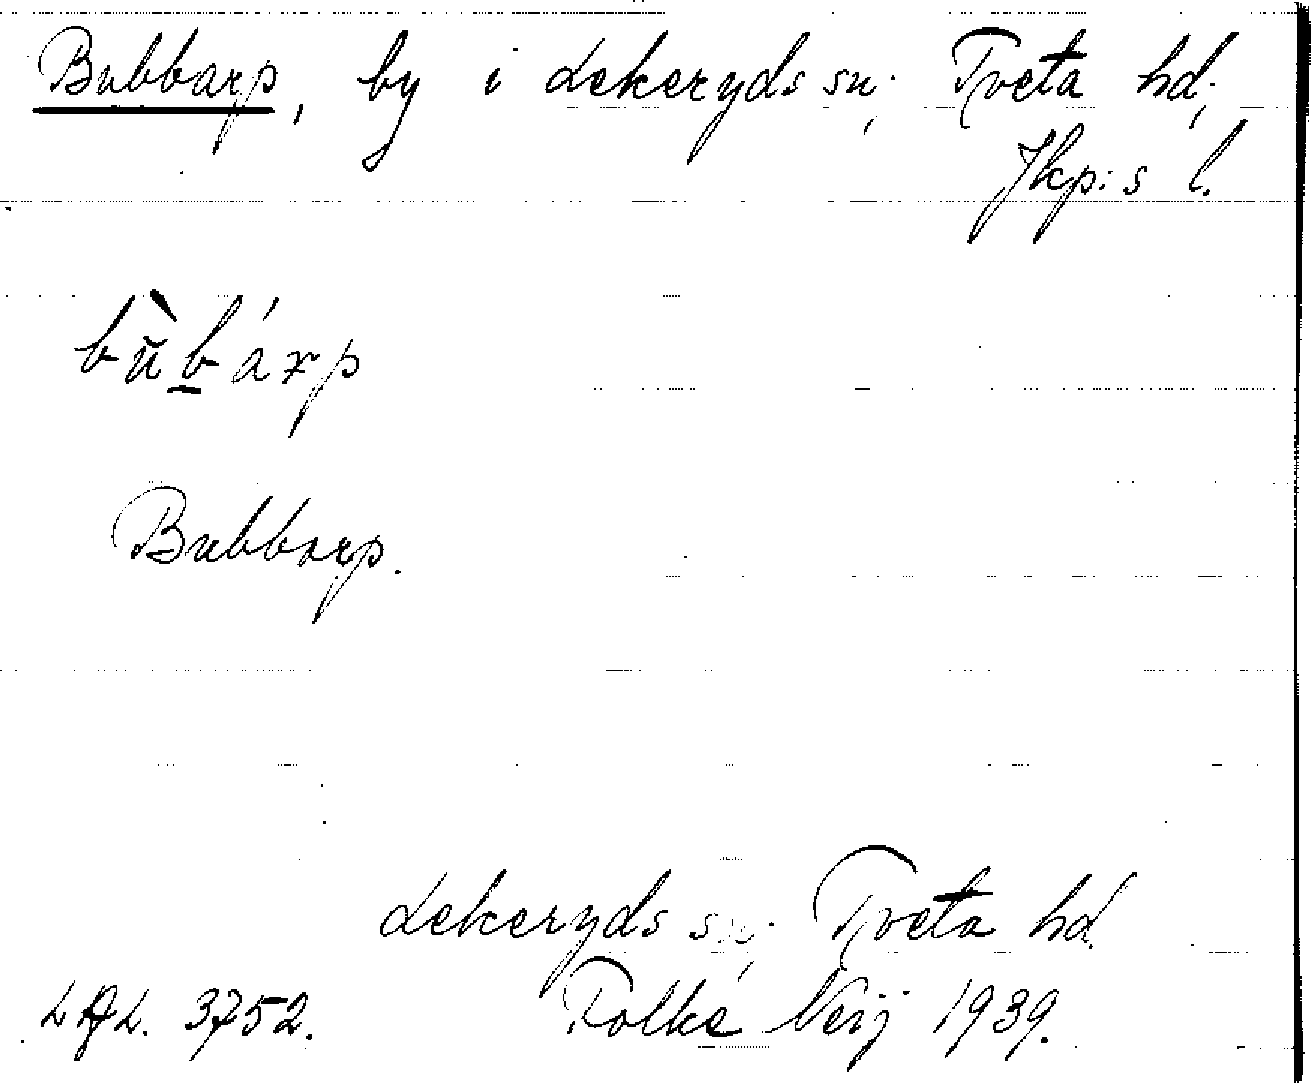 Bubbarp, by i Lekeryds sn; Tveta hd;
Jkp:s l.
bùbárp
Bubbarp.
Lekeryds sn; Tveta hd.
3752. Folke Neij 1939.